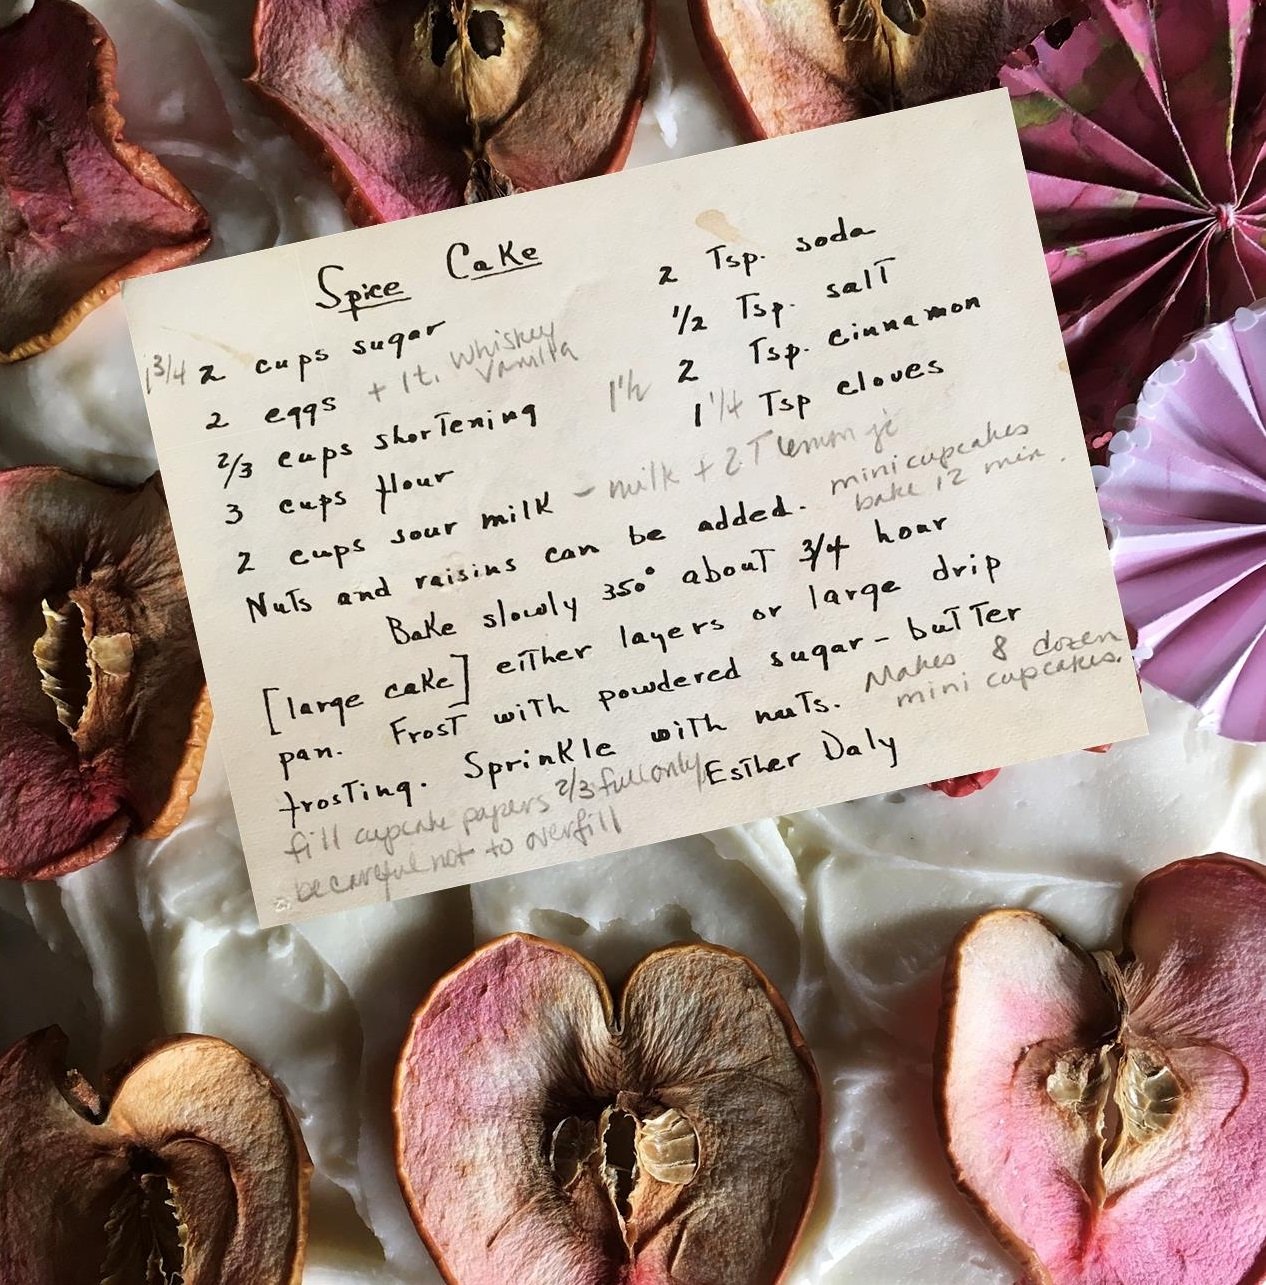 Spice Cake
1 3/4 2 cups sugar
2 eggs + 1 t. whiskey vanilla
2/3 cups shortening
3 cups flour
2 cups sour milk - milk + 2 T lemon jc
2 Tsp. soda
1/2 Tsp. salt
1 1/2 2 Tsp. cinnamon
1 1/4 Tsp cloves
Nuts and raisins can be added. mini cupcakes
bake 12 min.
Bake slowly 350° about 3/4 hour
[large cake] either layers or large drip
pan. Frost with powdered sugar - butter
frosting. Sprinkle with nuts. Makes 8 dozen
mini cupcakes.
fill cupcake papers 2/3 full only Esther Daly
be careful not to overfill